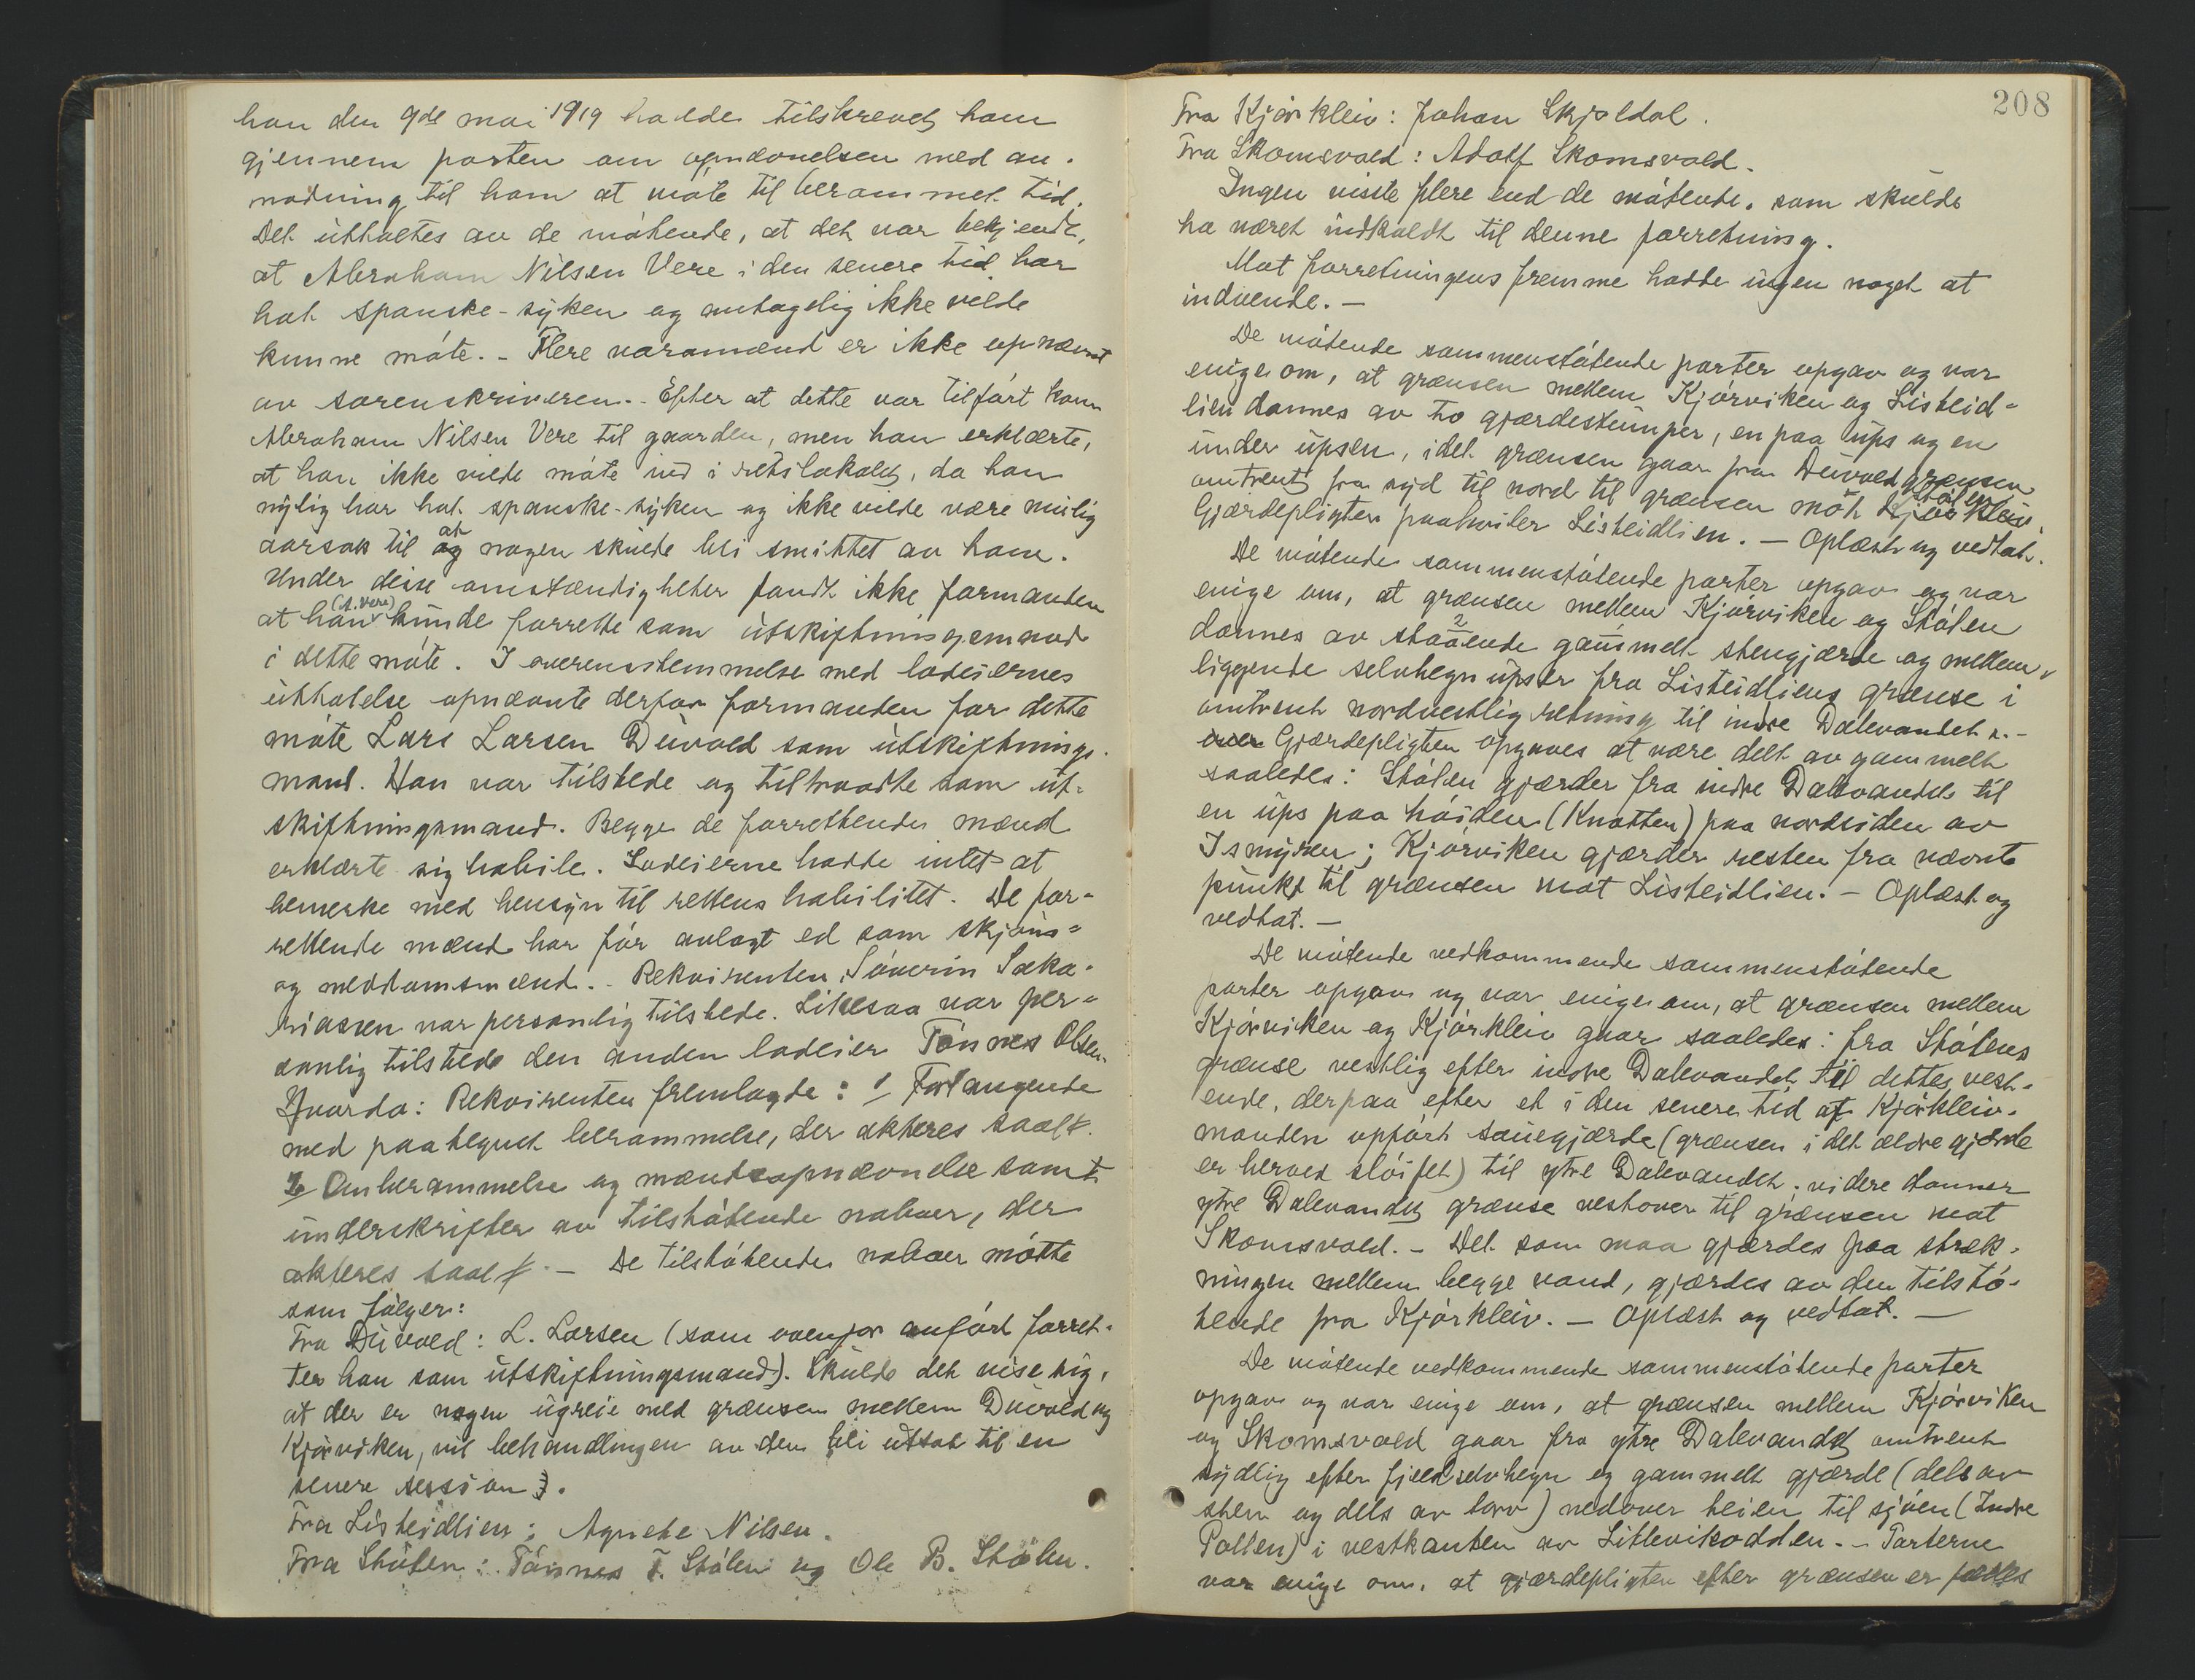 han den 9de mai 1919 hadde tilskrevet ham
gjennem posten om opnævnelsen med an-
modning til ham at møte til berammet tid.
Det uttaltes av de møtende, at det var bekjendt,
at Abraham Nilsen Vere i den senere tid har
hat spanske-syken og antagelig ikke vilde
kunne møte. - Flere varamænd er ikke opnævnt
av sorenskriveren. - Efter at dette var tilført kom
Abraham Nilsen Vere til gaarden, men han erklærte,
at han ikke vilde møte ind i retslokalet, da han
nylig har hat spanske-syken og ikke vilde være mulig
aarsak til at nogen skulde bli smittet av ham.
Under disse omstændigheter fandt ikke formanden
at han (A. Vere) kunde forrette som utskiftningsmand
i dette møte. I overensstemmelse med lodeiernes
uttalelse opnævnte derfor formanden for dette
møte Lars Larsen Duvold som utskiftnings-
mand. Han var tilstede og tiltraadte som ut-
skiftningsmand. Begge de forrettende mænd
erklærte sig habile. Lodeierne hadde intet at
bemerke med hensyn til rettens habilitet. De for-
rettende mænd har før avlagt ed som skjøns-
og meddomsmænd. - Rekvirenten, Søverin Saka-
riassen var personlig tilstede. Likesaa var per-
sonlig tilstede den anden lodeier Tønnes Olsen
Hvarda: Rekvirenten fremlagde: 1/ Forlangende
med paategnet berammelse, der akteres saal.
2/ Omberammelse og mandsopnævnelse samt
underskrifter av tilstøtende naboer, der
akteres saal. - De tilstøtende naboer møtte
som følger:
Fra Duvold: L. Larsen (som ovenfor anført forret-
ter han som utskiftningsmand). Skulde det vise sig,
at der er nogen ugreie med grænsen mellem Duvold og
Kjørviken, vil behandlingen av den bli utsat til en
senere session).
Fra Listeidlien: Agnete Nilsen.
Fra Støten: Tønnes T. Støten og Ole B. Støten.
208
Fra Kjørkleiv: Johan Skjoldal.
Fra Skomsvold: Adolf Skomsvold.
Ingen visste flere end de møtende, som skulde
ha været indkaldt til denne forretning.
Mot forretningens fremme hadde ingen noget at
indvende. -
De møtende sammenstøtende parter opgav og var
enige om, at grænsen mellem Kjørviken og Listeid-
lien dannes av to gjærdestumper, en paa ups og en
under upsen, idet grænsen gaar fra Duvoldgrænsen
omtrent fra syd til nord til grænsen mot Støten.
Gjærdepligten paahviler Listeidlien. - Oplæst og vedtat.
De møtende sammenstøtende parter opgav og var
enige om, at grænsen mellem Kjørviken og Støten
dannes av staaende gammelt stengjærde og mellem-
liggende selvhegn upser fra Listeidliens grænse i
omtrent nordvestlig retning til indre Dalevandet. -
Gjærdepligten opgaves at være delt av gammelt
saaledes: Støten gjærder fra indre Dalevandet til
en ups paa høiden (Knatten) paa nordsiden av
Ismyren; Kjørviken gjærder resten fra nævnte
punkt til grænsen mot Listeidlien. - Oplæst og
vedtat. -
De møtende vedkommende sammenstøtende
parter opgav og var enige om, at grænsen mellem
Kjørviken og Kjørkleiv gaar saaledes: fra Støtens
grænse vestlig efter indre Dalevandet til dettes vest-
ende, derpaa efter et i den senere tid af Kjørkleiv-
manden opført sauegjærde (grænsen i det ældre gjærde
er herved sløifet) til ytre Dalevandet; videre danner
ytre Dalevandet grænse vestover til grænsen mot
Skomsvold. - Det som maa gjærdes paa stræk-
ningen mellem begge vand, gjærdes av den tilstø-
tende fra Kjørkleiv. - Oplæst og vedtat. -
De møtende vedkommende sammenstøtende parter
opgav og var enige om, at grænsen mellem Kjørviken
og Skomsvold gaar fra ytre Dalevandet omtrent
sydlig efter fjeld selvhegn og gammelt gjærde (dels av
sten og dels av torv) nedover heien til sjøen (Indre
Pollen) i vestkanten av Litlevikodden. - Parterne
var enige om, at gjærdepligten efter grænsen er fælles